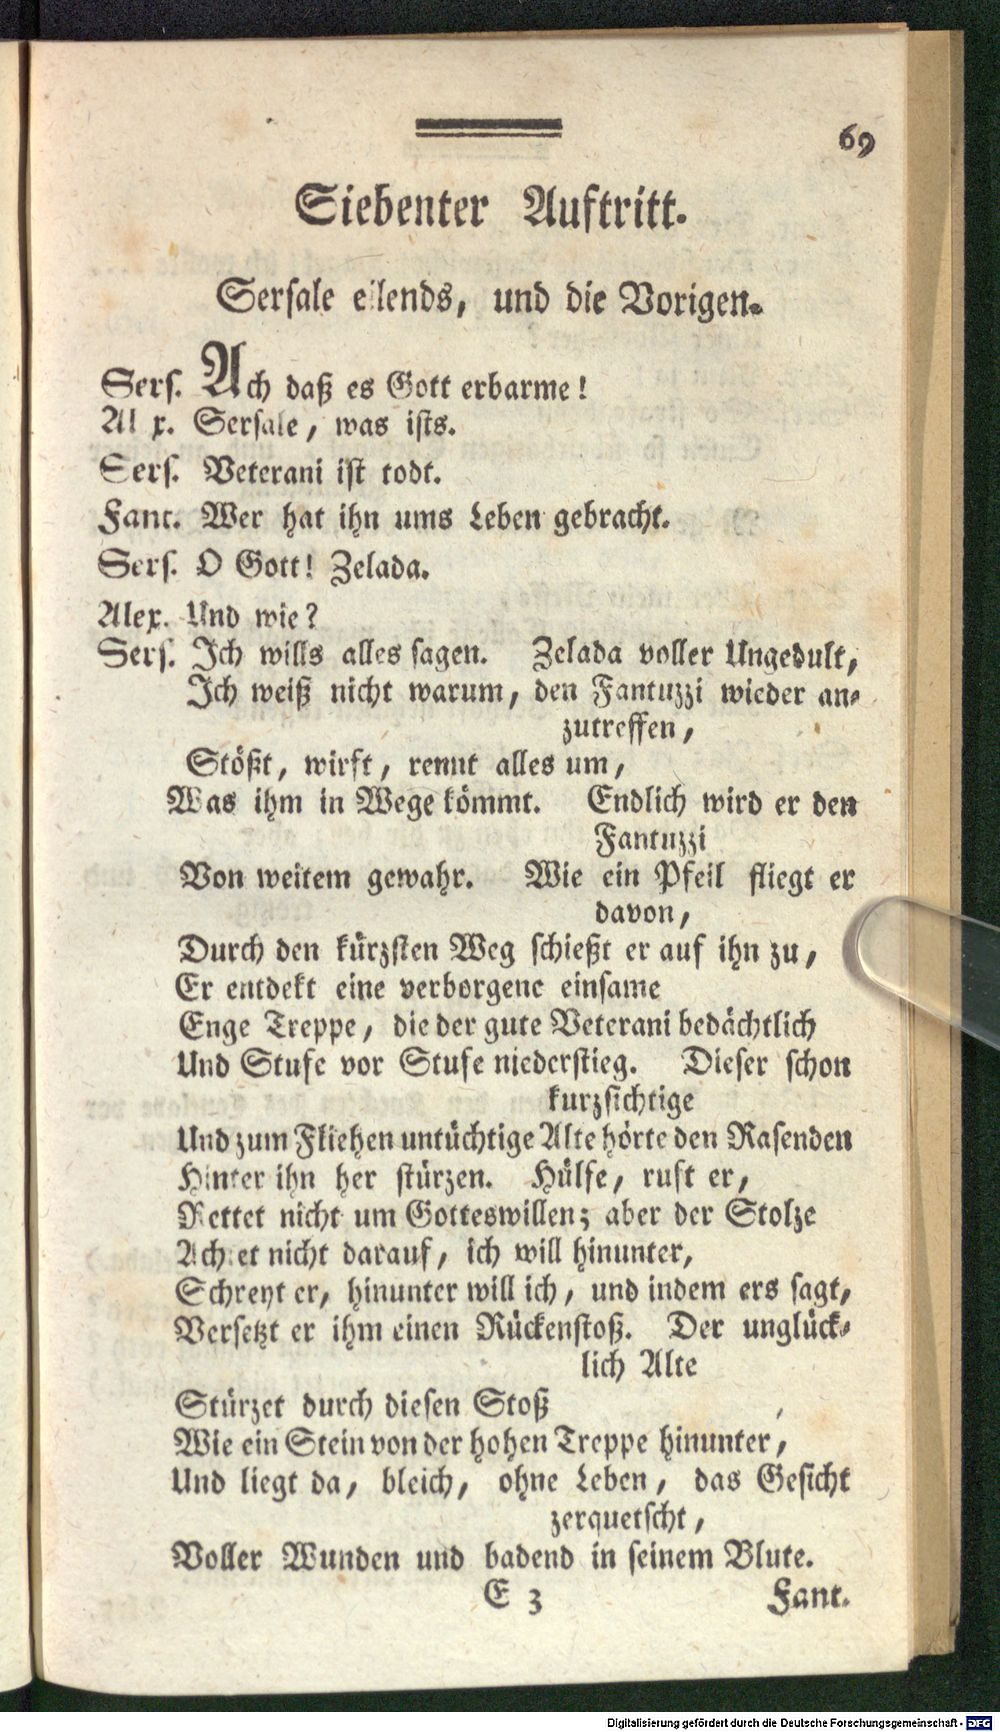 69
Siebenter Auftritt.
Sersale eilends, und die Vorigen.
Sers. Ach daß es Gott erbarme!
Al x. Sersale, was ists.
Sers. Veterani ist todt.
Fant. Wer hat ihn ums Leben gebracht.
Sers. O Gott! Zelada.
Alex. Und wie?
Sers. Ich wills alles sagen. Zelada voller Ungedult,
Ich weiß nicht warum, den Fantuzzi wieder an-
zutreffen,
Stößt, wirft, rennt alles um,
Was ihm in Wege kömmt. Endlich wird er den
Fantuzzi
Von weitem gewahr. Wie ein Pfeil fliegt er
davon,
Durch den kürzsten Weg schießt er auf ihn zu,
Er entdekt eine verborgene einsame
Enge Treppe, die der gute Veterani bedächtlich
Und Stufe vor Stufe niederstieg. Dieser schon
kurzsichtige
Und zum Fliehen untüchtige Alte hörte den Rasenden
Hinter ihn her stürzen. Hülfe, ruft er,
Rettet nicht um Gotteswillen; aber der Stolze
Achtet nicht darauf, ich will hinunter,
Schreyt er, hinunter will ich, und indem ers sagt,
Versetzt er ihm einen Rückenstoß. Der unglück-
lich Alte
Stürzet durch diesen Stoß
Wie ein Stein von der hohen Treppe hinunter,
Und liegt da, bleich, ohne Leben, das Gesicht
zerquetscht,
Voller Wunden und badend in seinem Blute.
E 3 Fant.
Digitalisierung gefördert durch die Deutsche Forschungsgemeinschaft - DFG